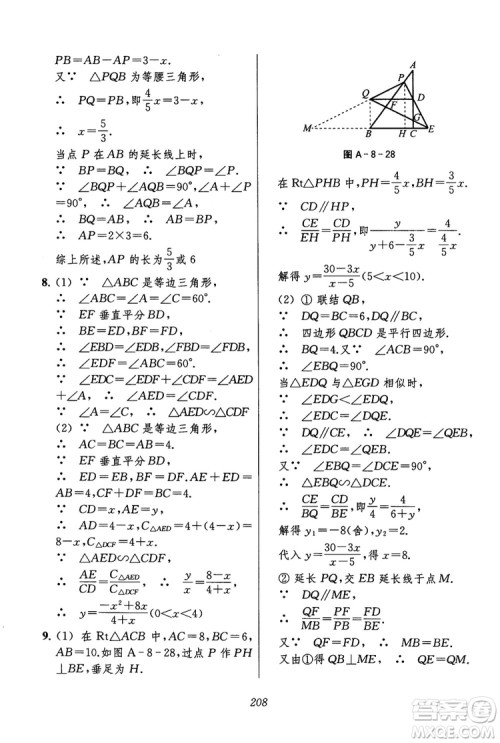 PB=AB-AP=3-x.
又∵ △PQB 为等腰三角形,
∴ PQ=PB, 即 4/5 x=3-x,
∴ x=5/3.
当点 P 在 AB 的延长线上时,
∵ BP=BQ, ∴ ∠BQP=∠P.
∵ ∠BQP+∠AQB=90°, ∠A+∠P=90°,
∴ ∠AQB=∠A.
∴ BQ=AB. ∴ AB=BP.
∴ AP=2×3=6.
综上所述,AP 的长为 5/3 或 6
8. (1) ∵ △ABC 是等边三角形,
∴ ∠ABC=∠C=∠A=60°.
∵ EF 垂直平分 BD,
∴ BE=ED, ∴ BF=DF.
∴ ∠EBD=∠EDB, ∠FBD=∠FDB.
∴ ∠EDF=∠ABC=60°.
∵ ∠EDC=∠EDF+∠FDC=∠AED
+∠A. ∴ ∠FDC=∠AED.
∵ ∠A=∠C, ∴ △AED∽△CDF
(2) ∵ △ABC 是等边三角形,
∴ AC=BC=AB=4.
∵ EF 垂直平分 BD,
∴ ED=EB, BF=FD.
∵ CD=x,
∴ AD=4-x.
∴ C△AED=AD+AB=4+(4-x)=
8-x. C△DCF=CD+BC=4+x.
∵ △AED∽△CDF,
∴ AE/CD=C△AED/C△DCF, ∴ y/x=(8-x)/(4+x).
∴ y=(-x²+8x)/(4+x)
9. (1) 在 Rt△ACB 中,AC=8,BC=6,
AB=10. 如图 A-8-28,过点 P 作 PH
⊥BE,垂足为 H.
A
P
Q
D
F
G
M
B
H
C
E
图 A-8-28
在 Rt△PHB 中,PH=4/5 x,BH=3/5 x.
∵ CD∥HP,
∴ CE/EH=CD/PH, 即 y/(y+6-3/5 x)=4/(4/5 x).
解得 y=(30-3x)/(x-5)(5<x<10)
(2) ① 联结 QB,
∵ DQ=BC=6, DQ∥BC,
∴ 四边形 QBCD 是平行四边形.
∴ BQ=DC=4.
∵ ∠ACB=90°, ∴ ∠EBQ=90°.
当△EDQ 与△EGD 相似时,
∵ ∠EDG<∠EDQ,
∴ ∠EDG=∠DQE.
∵ DQ∥CE, ∴ ∠DQE=∠QEB.
∴ ∠EDG=∠QEB.
又∵ ∠EBQ=∠ECD=90°,
∴ △EBQ∽△DCE.
∴ EC/BQ=DC/BE, 即 y/4=4/(6+y).
解得 y₁=-8(舍), y₂=2.
代入 y=(30-3x)/(x-5), 得 x=8
② 延长 PQ,交 EB 延长线于点 M.
∵ DQ∥ME,
∴ QF/MB=PF/PB, DF/BE=PF/PB.
∴ QF/MB=DF/BE.
又∵ ①得 QB⊥ME, ∴ QM=QE.
208